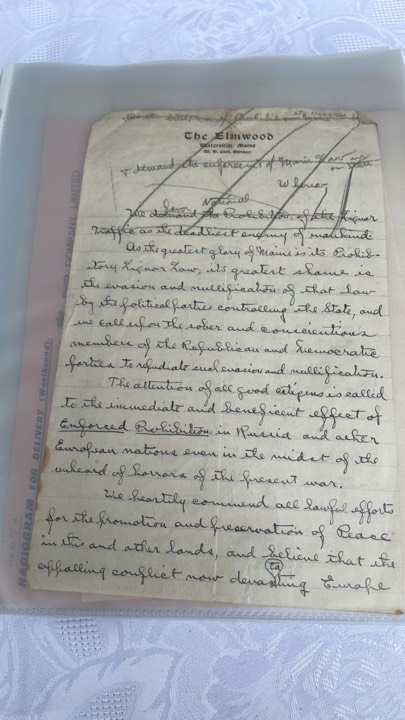 The Elmwood
Waterville Maine
& demand the enforcement of Maine Law
Whereas
favor National
We demand the Prohibition of the Liquor
Traffic as the deadliest enemy of mankind
As the greatest glory of Maine is its Prohib-
itory Liquor Law, its greatest shame is
the evasion and nullification of that law
by the political parties controlling the State, and
we call upon the sober and conscientious
members of the Republican and Democratic
parties to repudiate such evasion and nullification.
The attention of all good citizens is called
to the immediate and beneficent effect of
Enforced Prohibition in Russia and other
European nations even in the midst of the
unheard of horrors of the present war.
We heartily commend all lawful efforts
for the promotion and preservation of Peace
in this and other lands, and believe that the
ta
appalling conflict now devasting Europe
RADIOGRAM FOR DELIVERY (Westbound).
COMPANY LIMITED